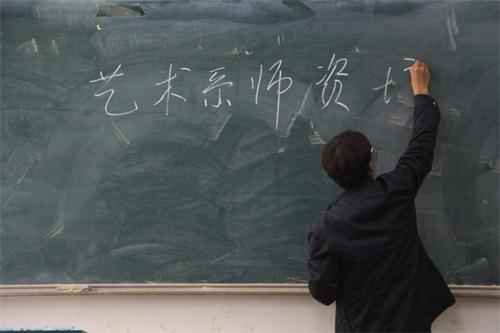 艺术系师资